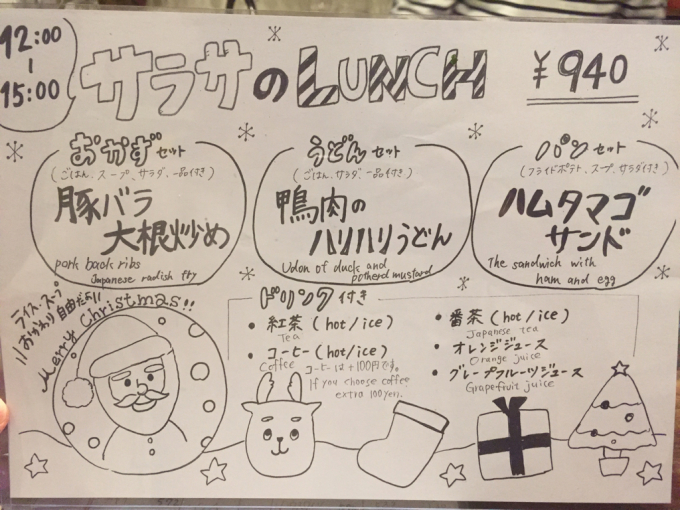 12:00
-
15:00
サラサのLUNCH
¥940
おかずセット
(ごはん、スープ、サラダ、一品付き)
豚バラ
大根炒め
pork back ribs
Japanese radish fry
うどんセット
(ごはん、サラダ、一品付き)
鴨肉の
ハリハリうどん
Udon of duck and
potherd mustard
パンセット
(フライドポテト、スープ、サラダ付き)
ハムタマゴ
サンド
The sandwich with
ham and egg
ライス・スープ
おかわり自由だよ!!
Merry Christmas!!
ドリンク付き
・紅茶(hot/ice)
Tea
・コーヒー(hot/ice)
Coffee コーヒーは+100円です。
If you choose coffee
extra 100yen.
・番茶(hot/ice)
Japanese tea
・オレンジジュース
Orange juice
・グレープフルーツジュース
Grapefruit juice